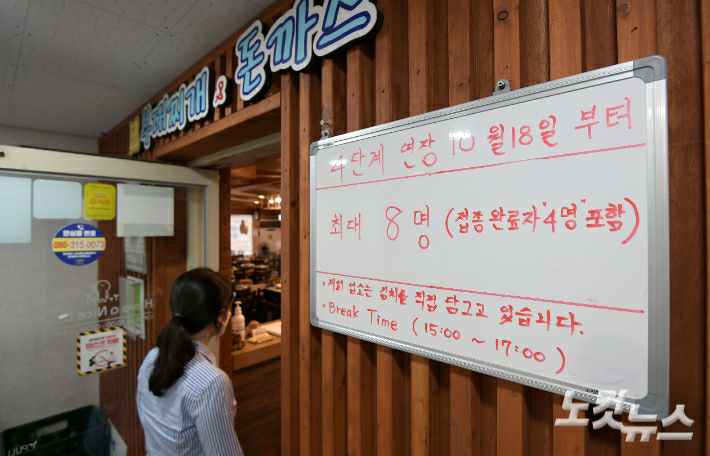 부대찌개 & 돈까스
4단계 연장 10월18일 부터
최대 8명 (접종완료자 "4명" 포함)
• 저희 업소는 김치를 직접 담그고 있습니다.
• Break Time ( 15:00 ~ 17:00 )
안심콜 번호
080-315 0073
노컷뉴스